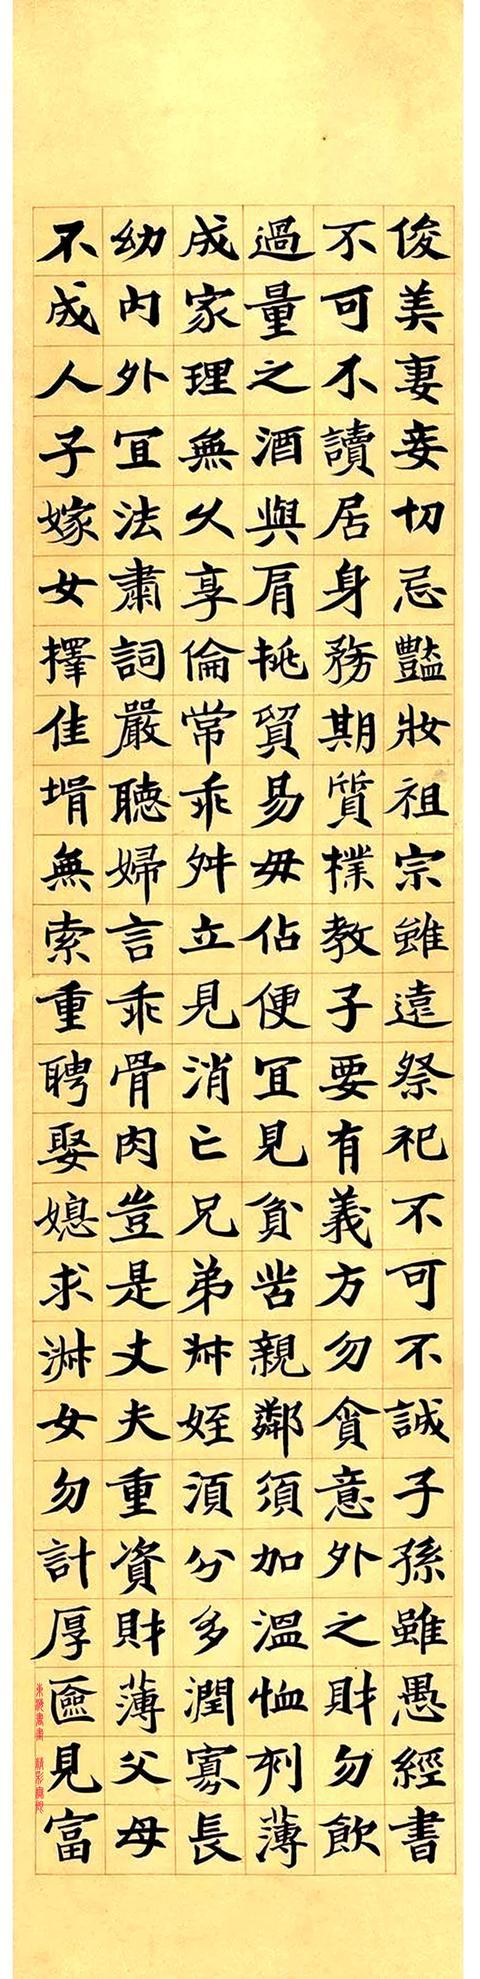 俊美妻妾切忌豔妝祖宗雖遠祭祀不可不誠子孫雖愚經書
不可不讀居身務期質樸教子要有義方勿貪意外之財勿飲
過量之酒與肩挑貿易毋佔便冝見貧苦親鄰須加溫恤刻薄
成家理無久享倫常乖舛立見消亡兄弟叔姪須分多潤寡長
幼内外冝法肅詞嚴聽婦言乖骨肉豈是丈夫重資財薄父母
不成人子嫁女擇佳壻無索重聘娶媳求淑女勿計厚匳見富